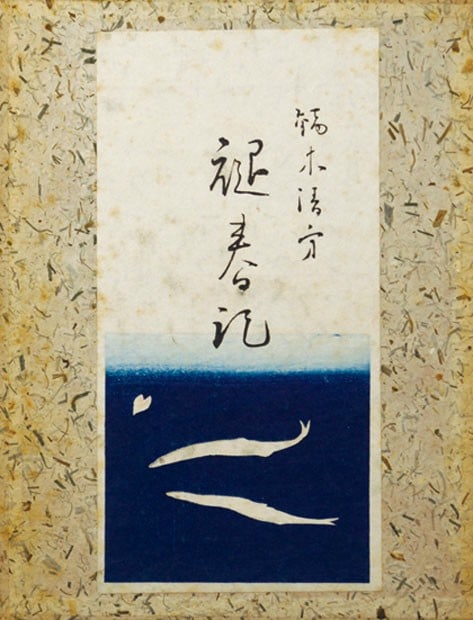 鏑木清方
褪春記